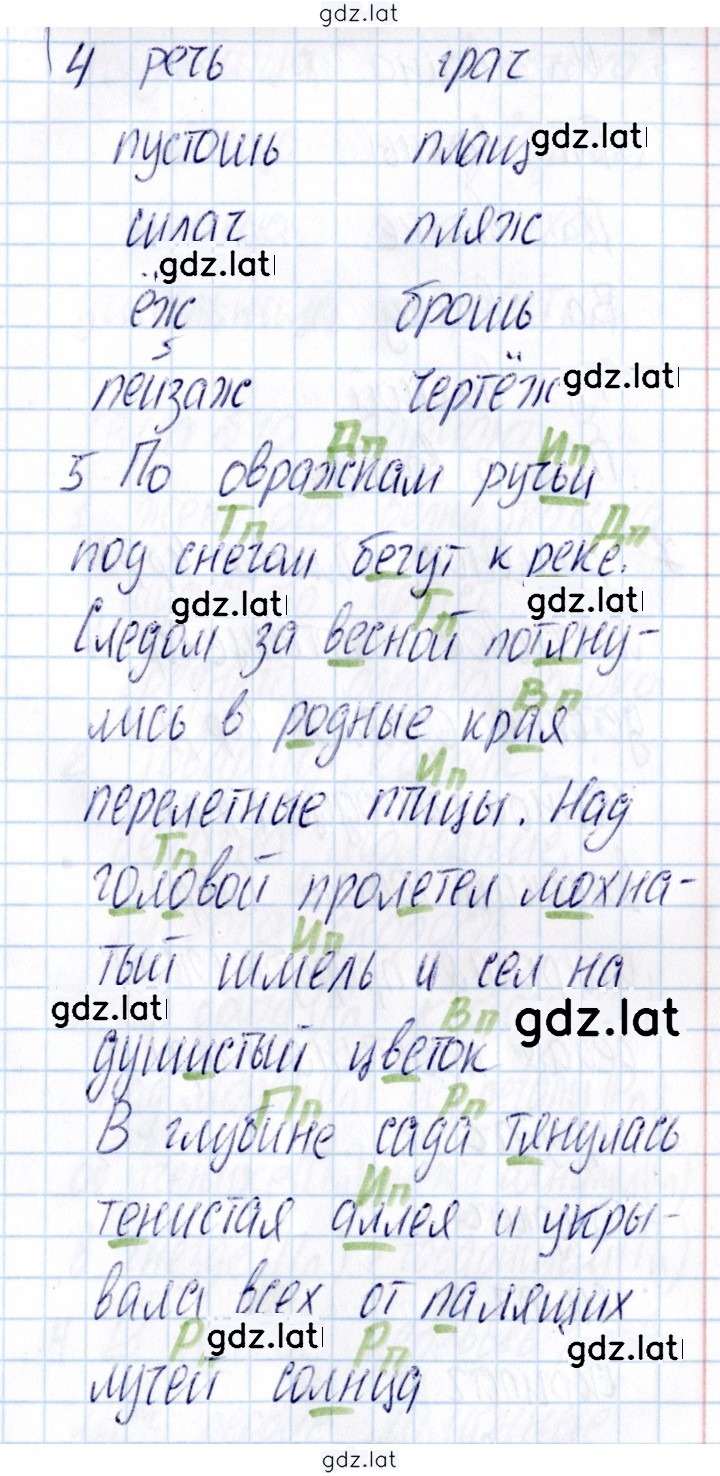 gdz.lat
4 речь грач
пустошь плащ gdz.lat
силач пляж
gdz.lat
ёж брошь
5
пейзаж чертёж gdz.lat
Дп Ип
5 По овражкам ручьи
Тп Дп
под снегом бегут к реке.
gdz.lat Тп gdz.lat
Следом за весной потяну-
Вп
лись в родные края
Ип
перелетные птицы. Над
Тп
головой пролетел мохна-
Ип
тый шмель и сел на
gdz.lat Вп gdz.lat
душистый цветок
Пп Рп
В глубине сада тянулась
Ип
тенистая аллея и укры-
вала всех от палящих
Рп gdz.lat Рп gdz.lat
лучей солнца
gdz.lat